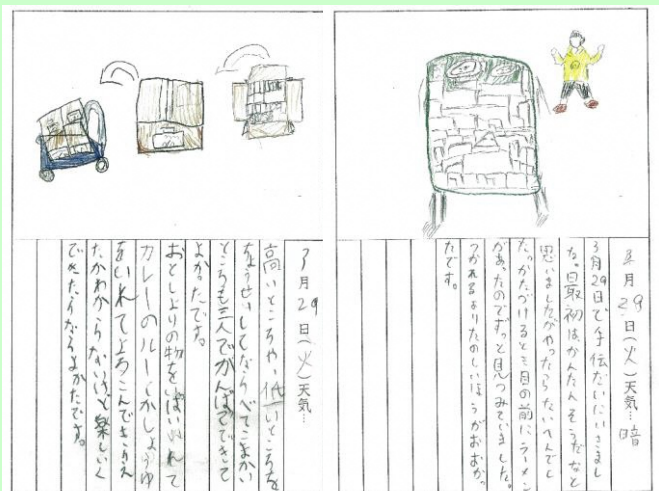 3月29日(火)天気…晴
3月29日で手伝だいにいきまし
た。最初はかんたんそうだなと
思いましたがやったらたいへんでし
たっかたづけると三目の前にラーメン
があったのでずっと見つみていました。
つかれるよりたのしいほうがおおかっ
たです。
3月29日(火)天気…
高いところや、低いところを
ちょうせいしてならべてこまかい
ところも三人でがんばってできて
よかったです。
おとしよりの物をいぱいいれて
カレーのルーとかしょうゆ
をいれてよろこんでもらえ
たかわからないけど楽しく
できたらならよかたです。